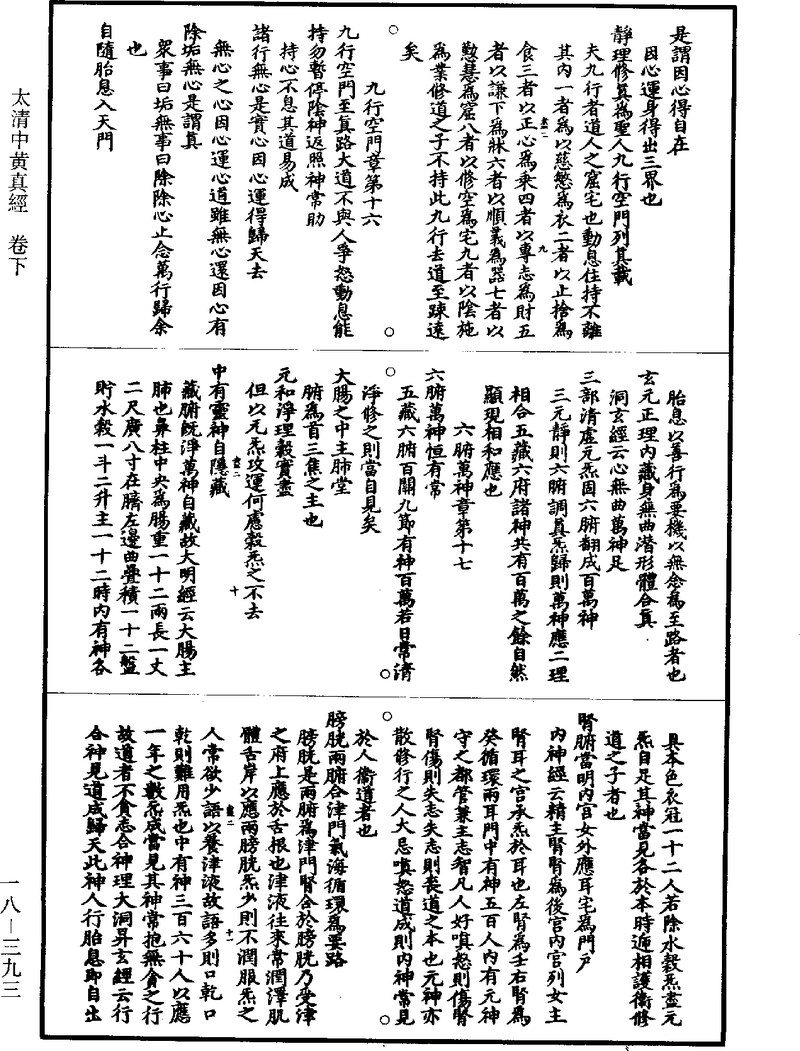 太清中黄真經　卷下
是謂因心得自在
因心運身得出三界也
靜理修真為聖人九行空門列其載
夫九行者道人之窟宅也動息住持不離
其内一者為以慈慜為衣二者以止捨為
食三者以正心為乘四者以專志為財五
者以謙下為牀六者以順義為器七者以
懃慧為窟八者以修空為宅九者以陰施
為業修道之子不持此九行去道至踈遠
矣
九行空門章第十六
九行空門至真路大道不與人爭怒動息能
持勿暫停陰神返照神常助
持心不息其道易成
諸行無心是實心因心運得歸天去
無心之心因心運心道雖無心還因心有
除垢無心是謂真
衆事曰垢無事曰除除心止念萬行歸余
也
自隨胎息入天門
胎息以善行為要機以無念為至路者也
玄元正理内藏身無曲潛形體合真
洞玄經云心無曲萬神足
三部清虛元炁固六腑翻成百萬神
三元靜則六腑調真炁歸則萬神應二理
相合五藏六府諸神共有百萬之餘自然
顯現相和應也
六腑萬神章第十七
六腑萬神恒有常
五藏六腑百關九節有神百萬若日常清
淨修之則當自見矣
大腸之中主肺堂
腑為首三焦之主也
元和淨理穀實盡
但以元炁攻運何慮穀炁之不去
中有靈神自隱藏
藏腑既淨萬神自藏故大明經云大腸主
肺也鼻柱中央為腸重一十二兩長一丈
二尺廣八寸在臍左邊曲疊積一十二盤
貯水穀一斗二升主一十二時内有神各
具本色衣冠一十二人若除水穀炁盡元
炁自足其神當見各於本時遞相護衛修
道之子者也
腎腑當明内宫女外應耳宅為門户
内神經云精主腎腎為後宫内宫列女主
腎耳之宫承炁於耳也左腎為壬右腎為
癸循環兩耳門中有神五百人内有元神
守之都管兼主志智凡人好嗔怒則傷腎
腎傷則失志失志則喪道之本也元神亦
散修行之人大忌嗔怒道成則内神常見
於人衛道者也
膀胱兩腑合津門氣海循環為要路
膀胱是兩腑為津門腎合於膀胱乃受津
之府上應於舌根也津液往來常潤澤肌
體舌岸以應兩膀胱炁少則不潤服炁之
人常欲少語以養津液故語多則口乾口
乾則難用炁也中有神三百六十人以應
一年之數炁成當見其神常抱無貪之行
故道者不貪志合神理大洞昇玄經云行
合神見道成歸天此神人行胎息即自出
一八－三九三